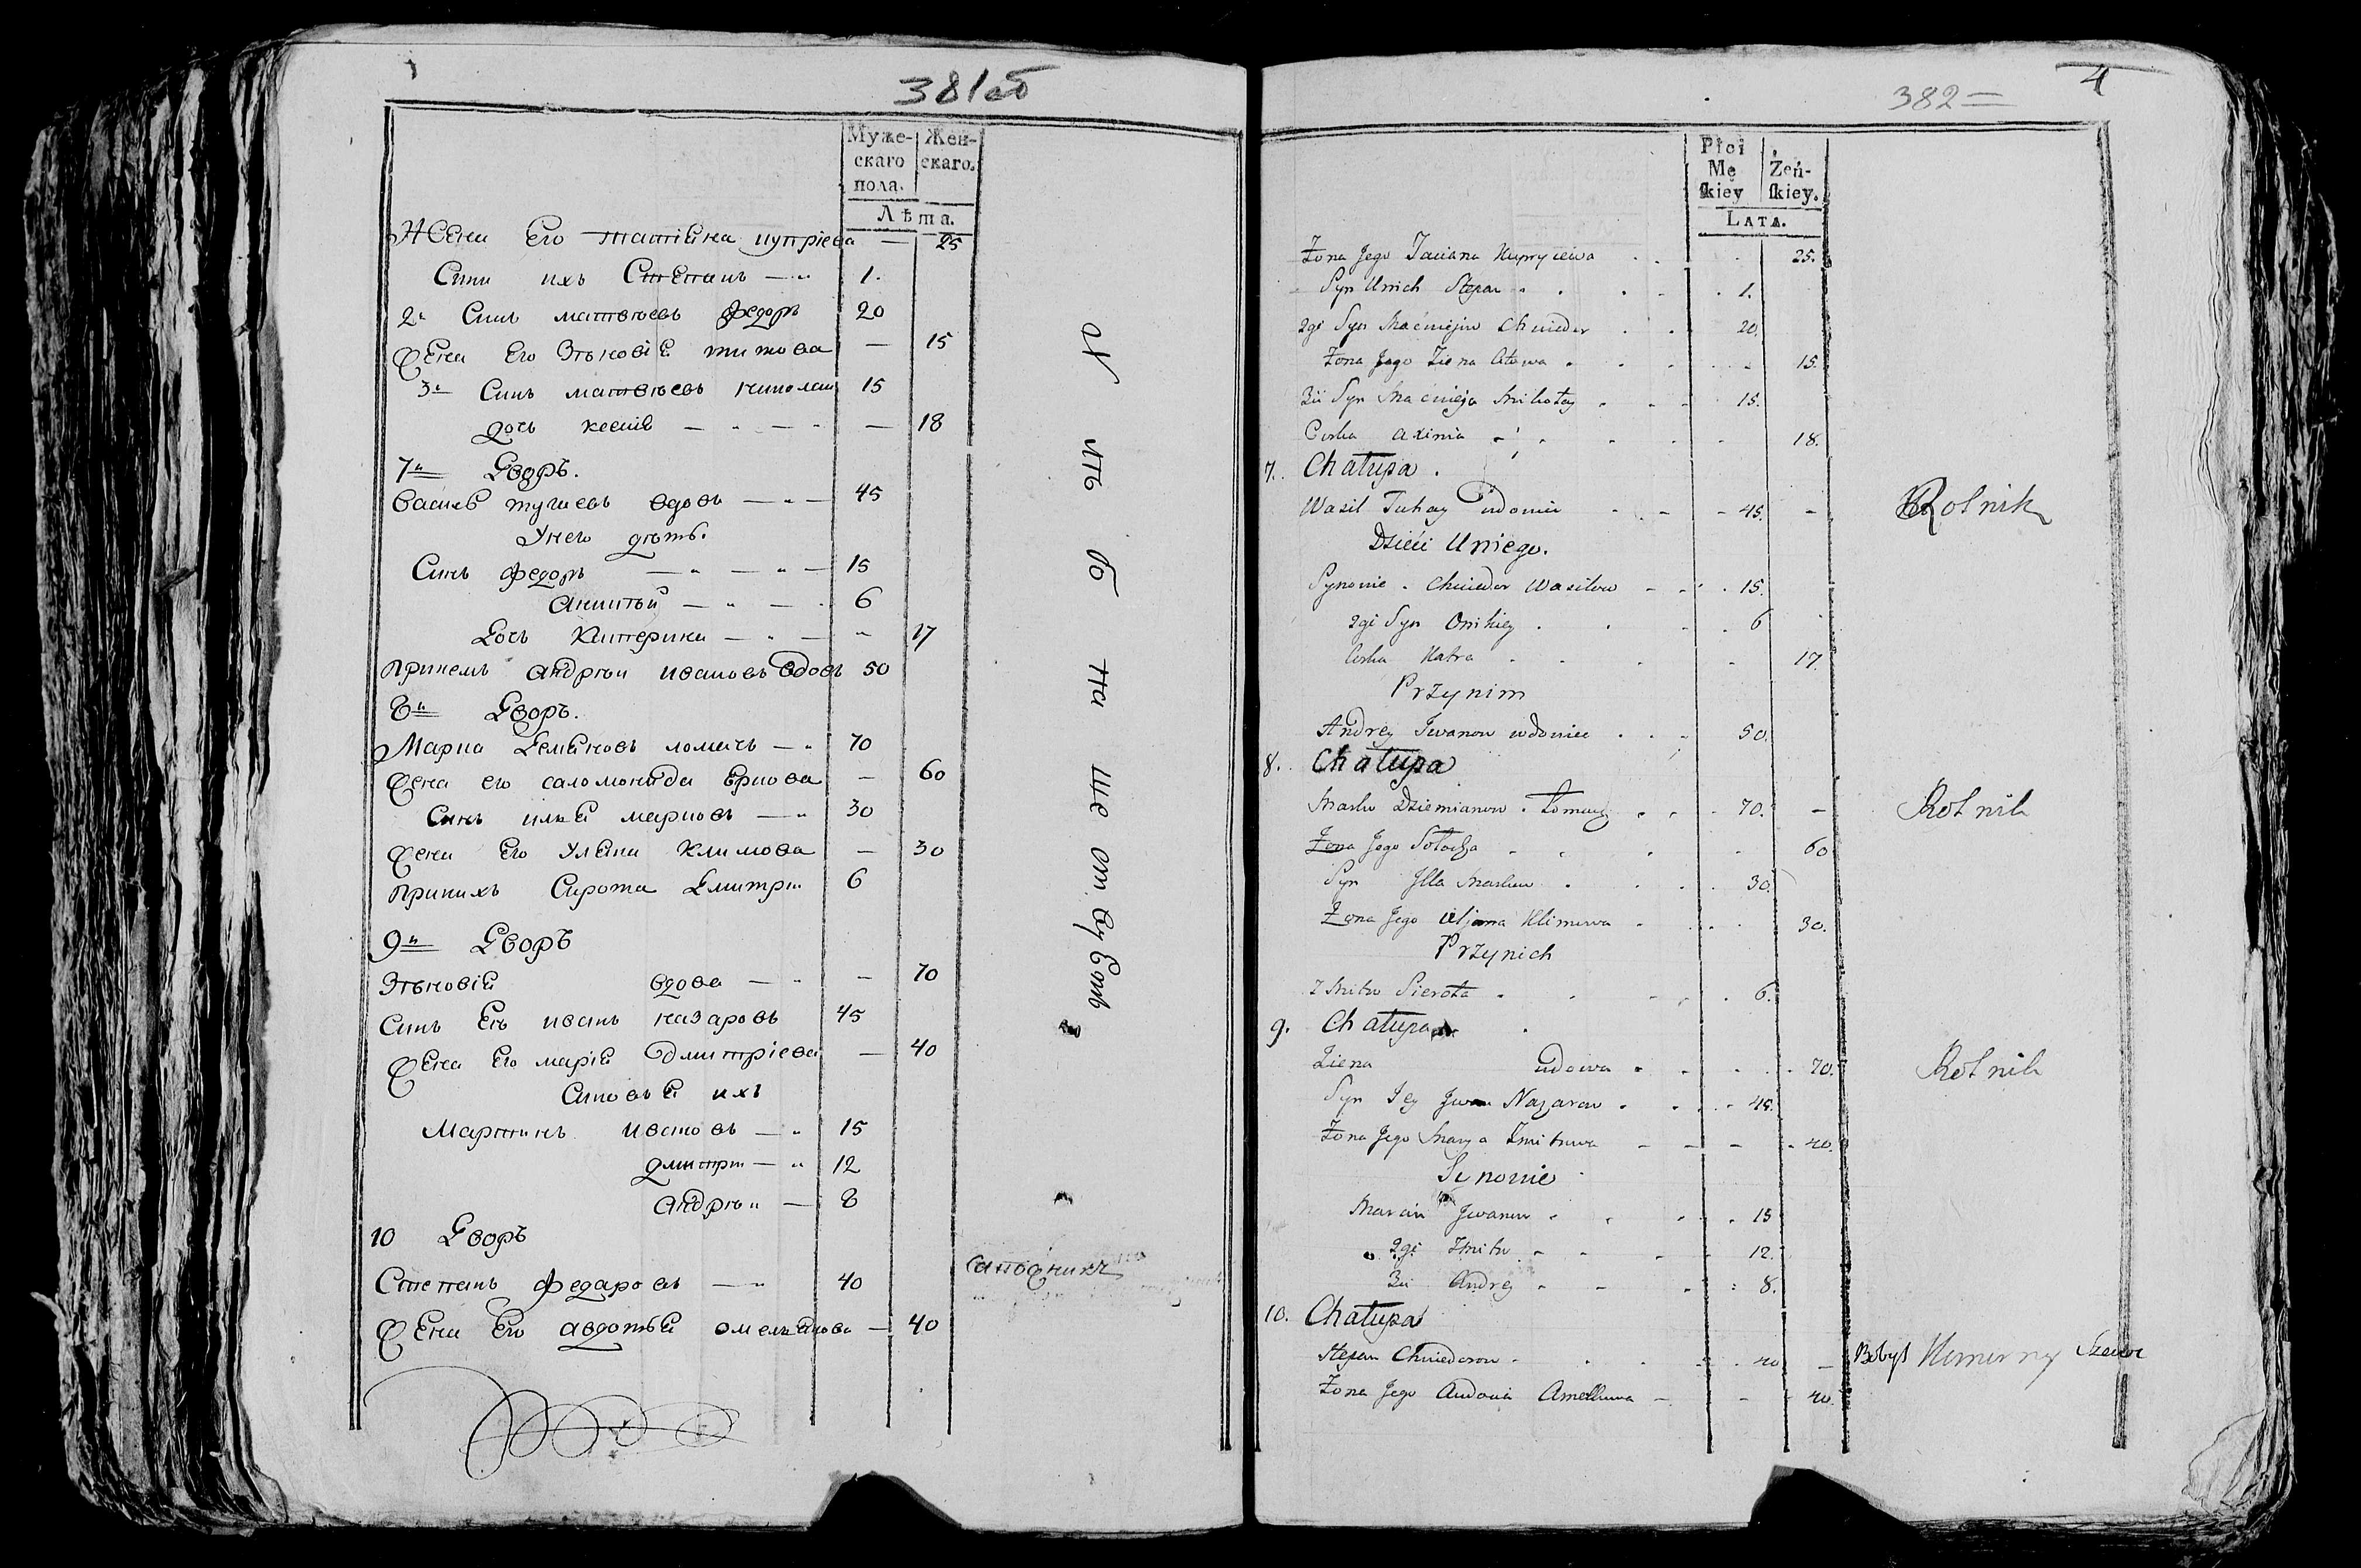 381об
Муже-
скаго
пола.
Жен-
скаго.
Лѣта.
Жена Его татіяна купріева — 25
Синъ ихъ Степанъ — 1.
2й Синъ матвѣевъ федоръ 20
Жена Его Зѣновія титова — 15
3й Синъ матвѣевъ николаи 15
дочь ксенія — — 18
7й Дворъ.
василь тугаевъ вдовъ — 45
Унего дѣтъ.
Синъ федоръ — 15
Аникѣй — 6
Дочь Катерина — 17
Принемъ андрѣи ивановъ вдовъ 50
8й Дворъ.
Марко Демяновъ ломачъ — 70
Жена его саломонида — 60
Синъ илья марковъ — 30
Жена Его Уляна Климова — 30
Принихъ Сирота Дмитрии 6
9й Дворъ
Зѣновія вдова — — 70
Синъ Ея иванъ назаровъ 45
Жена Его марія Дмитріева — 40
Синовья ихъ
Мартинъ ивановъ — 15
дмитри — 12
андрѣи — 8
10 Дворъ
Степанъ федаровъ — 40
Жена Его авдотья омельянова — 40
сапожникъ
382
4
Płci
Mę
skiey
Żeń-
skiey.
Lata.
Żona Jego Taciana Kupryiewa 25.
Syn Unich Stepan 1.
2gi Syn Maćwiejów Chwiedor 20.
Żona Jego Ziena 15.
3ci Syn Maćwieja Mikołay 15.
Corka Axinia 18.
7. Chałupa.
Wasil Tuhay Udowiec 45. - Rolnik
Dzieći Uniego.
Synowie. Chwiedor Wasilow 15.
2gi Syn Onikiey 6
Corka Katra 17.
Przynim
Andrey Jwanow wdowiec 50.
8. Chałupa
Marko Dziemianow Łomacz 70. - Rolnik
Żona Jego Sołocha 60
Syn Jlla Markow 30.
Żona Jego Uljana Klimowa 30.
Przynich
Zmitr Sierota 6.
9. Chałupa
Ziena Udowa 70. Rolnik
Syn Jey Jwan Nazarow 45.
Żona Jego Marya Zmitrowa 40.
Synowie
Marcin Jwanow 15
2gi Zmitr 12.
3ci Andrey 8.
10. Chałupa
Stepan Chwiedorow 40 - Bobyl Komorny Szewc
Żona Jego Audocia 40.